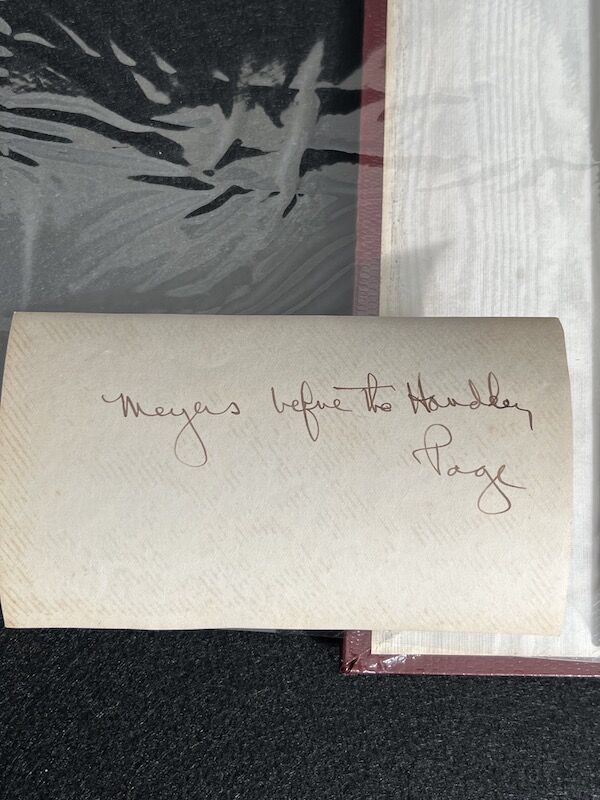 Meyers before the Handley
Page